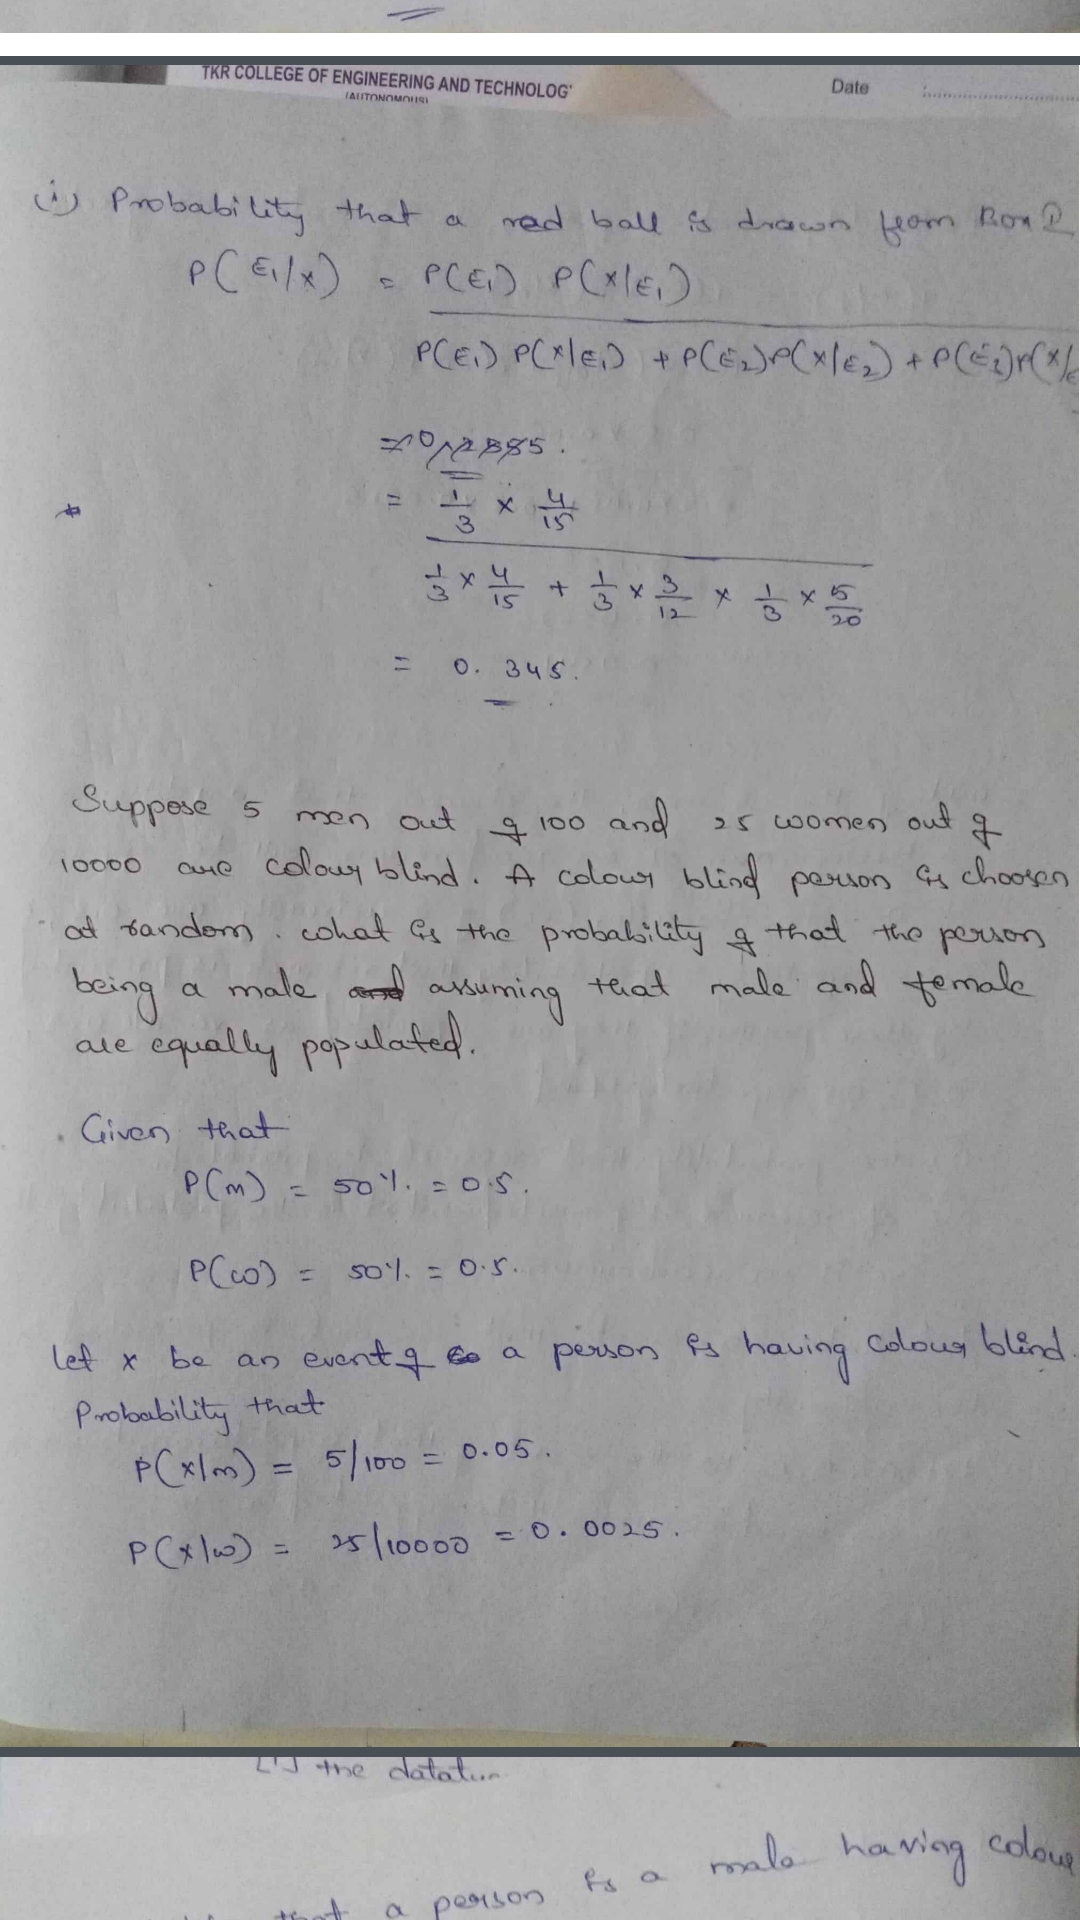 TKR COLLEGE OF ENGINEERING AND TECHNOLOG
(AUTONOMOUS)
Date
(i) Probability that a red ball is drawn from Box
P(E₁/x) = P(E₁) P(x/E₁)
P(E₁) P(x/E₁) + P(E₂) P(x/E₂) + P(E₃) P(x/E
=
= 1/3 × 4/15
1/3 × 4/15 + 1/3 × 3/12 × 1/3 × 5/20
= 0.345.
Suppose 5 men out of 100 and 25 women out of
10000 are colour blind. A colour blind person is choosen
at random. what is the probability of that the person
being a male and assuming that male and female
are equally populated.
Given that
P(m) = 50% = 0.5.
P(w) = 50% = 0.5.
Let x be an event of a person is having colour blind.
Probability that
P(x/m) = 5/100 = 0.05.
P(x/w) = 25/10000 = 0.0025.
the
that a person is a male having colour